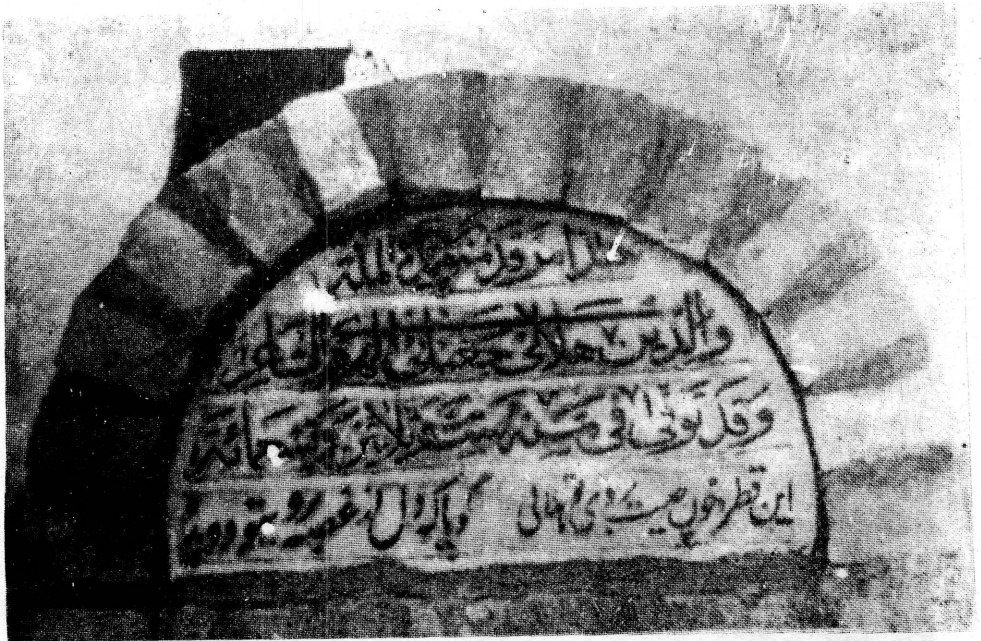 هذا مرقد الملة
والدین هلالی جغتائی الشاعر
وقد توفی فی سنه ست و ثلاثین و تسعمائة
این قطره خون چیست بروی تو هلالی گویا که دل از غصه بروی تو دویده